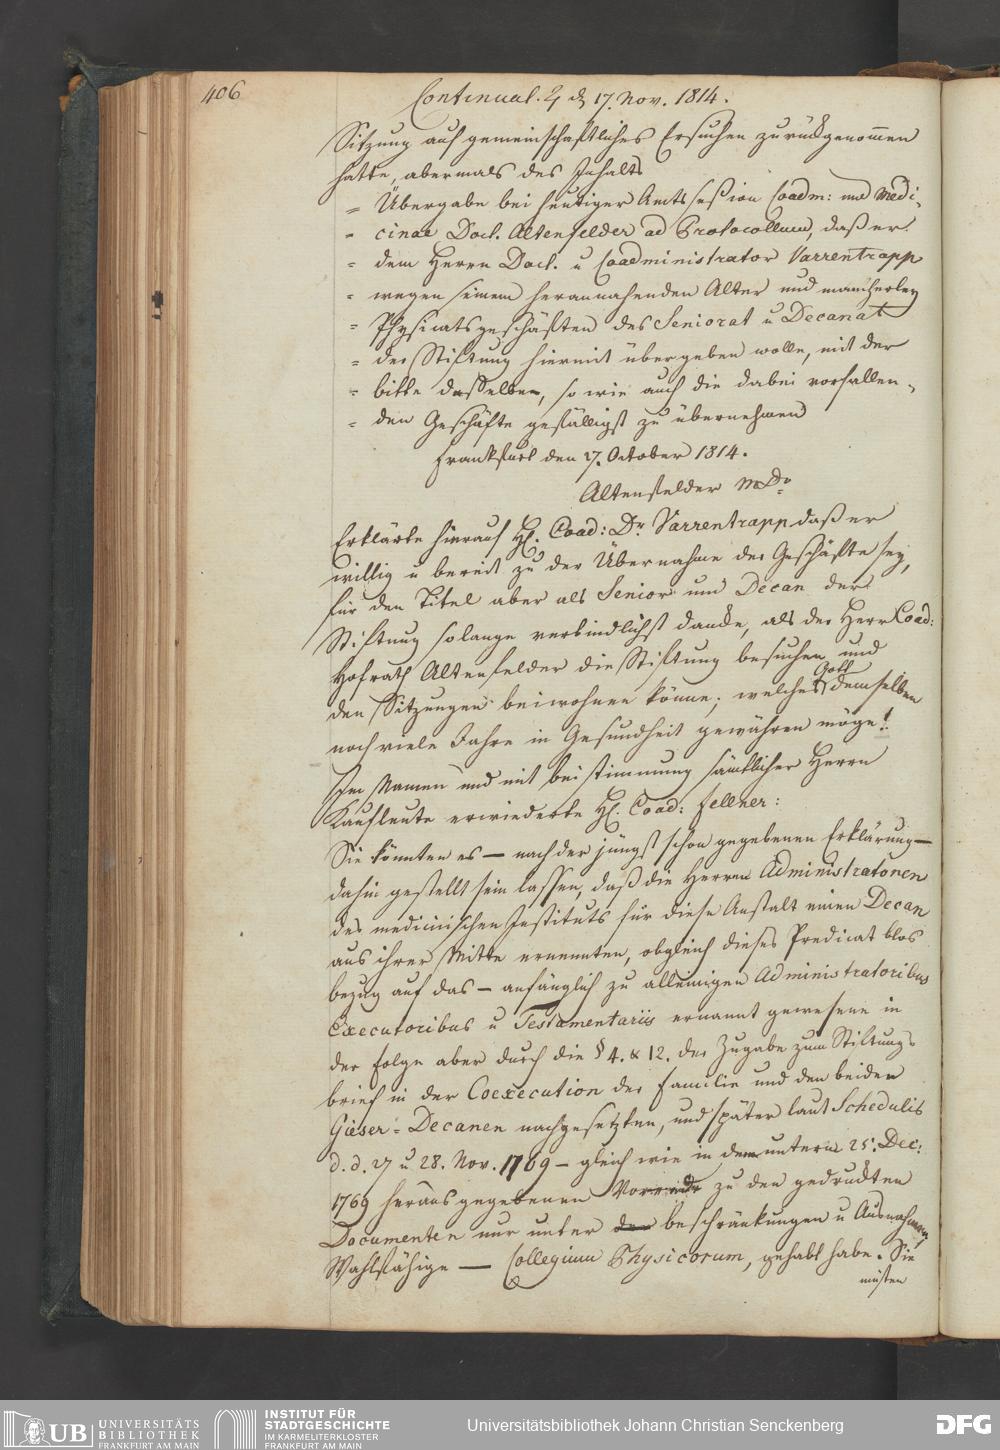 406
Continuat. ♃ d 17. Nov. 1814.
Sitzung auf gemeinschaftliches Ersuchen zurückgenom̄en
hatte, abermals des Inhalts
= Übergabe bei heutiger Amts seßion Coadm: und Medi-
= cinae Doct. Altenfelder ad Protocollum, daß er
= dem Herrn Doct. u Coadministrator Varrentrapp
= wegen seinem herannahenden Alter und mancherley
= Physicatsgeschäften des Seniorat u Decanat
= der Stiftung hiermit übergeben wolle, mit der
= bitte dasselbe, so wie auch die dabei vorfallen-
= den Geschäfte gefälligst zu übernehmen
Frankfurt den 27. October 1814.
Altenfelder MDr
Erklärte hierauf H. Coad: Dr. Varrentrapp daß er
willig u bereit zu der Übernahme der Geschäfte sey,
für den Titel aber als Senior und Decan der
Stiftung solange verbindlichst danke, als der Herr Coad:
Hofrath Altenfelder die Stiftung besuchen und
den Sitzungen beiwohnen könne; welches Gott demselben
noch viele Jahre in Gesundheit gewähren möge!
Im Namen und mit beistimmung sämtlicher Herrn
Kaufleute erwiederte H. Coad: Fellner:
Sie könnten es — nach der jüngst schon gegebenen Erklärung —
dahin gestellt sein lassen, daß die Herren Administratoren
des medicinischen Instituts für diese Anstalt einen Decan
aus ihrer Mitte ernennten, obgleich dieses Predicat blos
bezug auf das — anfänglich zu alleinigen Administratoribus
Executoribus u Testamentariis ernannt gewesene in
der Folge aber durch die § 4. & 12. der Zugabe zum Stiftungs
brief in der Coexecution der Familie und den beiden
Gieser-Decanen nachgesetzten, und später laut Schedulis
d. d. 27 u 28. Nov. 1769 — gleich wie in dem unterm 25. Dec:
1769 herausgegebenen Vorrede zu den gedruckten
Documenten nur unter der beschränkungen u Ausnahmen
Wahlfähige — Collegium Physicorum, gehabt habe. Sie
müsten
UB UNIVERSITÄTS
BIBLIOTHEK
FRANKFURT AM MAIN
INSTITUT FÜR
STADTGESCHICHTE
IM KARMELITERKLOSTER
FRANKFURT AM MAIN
Universitätsbibliothek Johann Christian Senckenberg
DFG